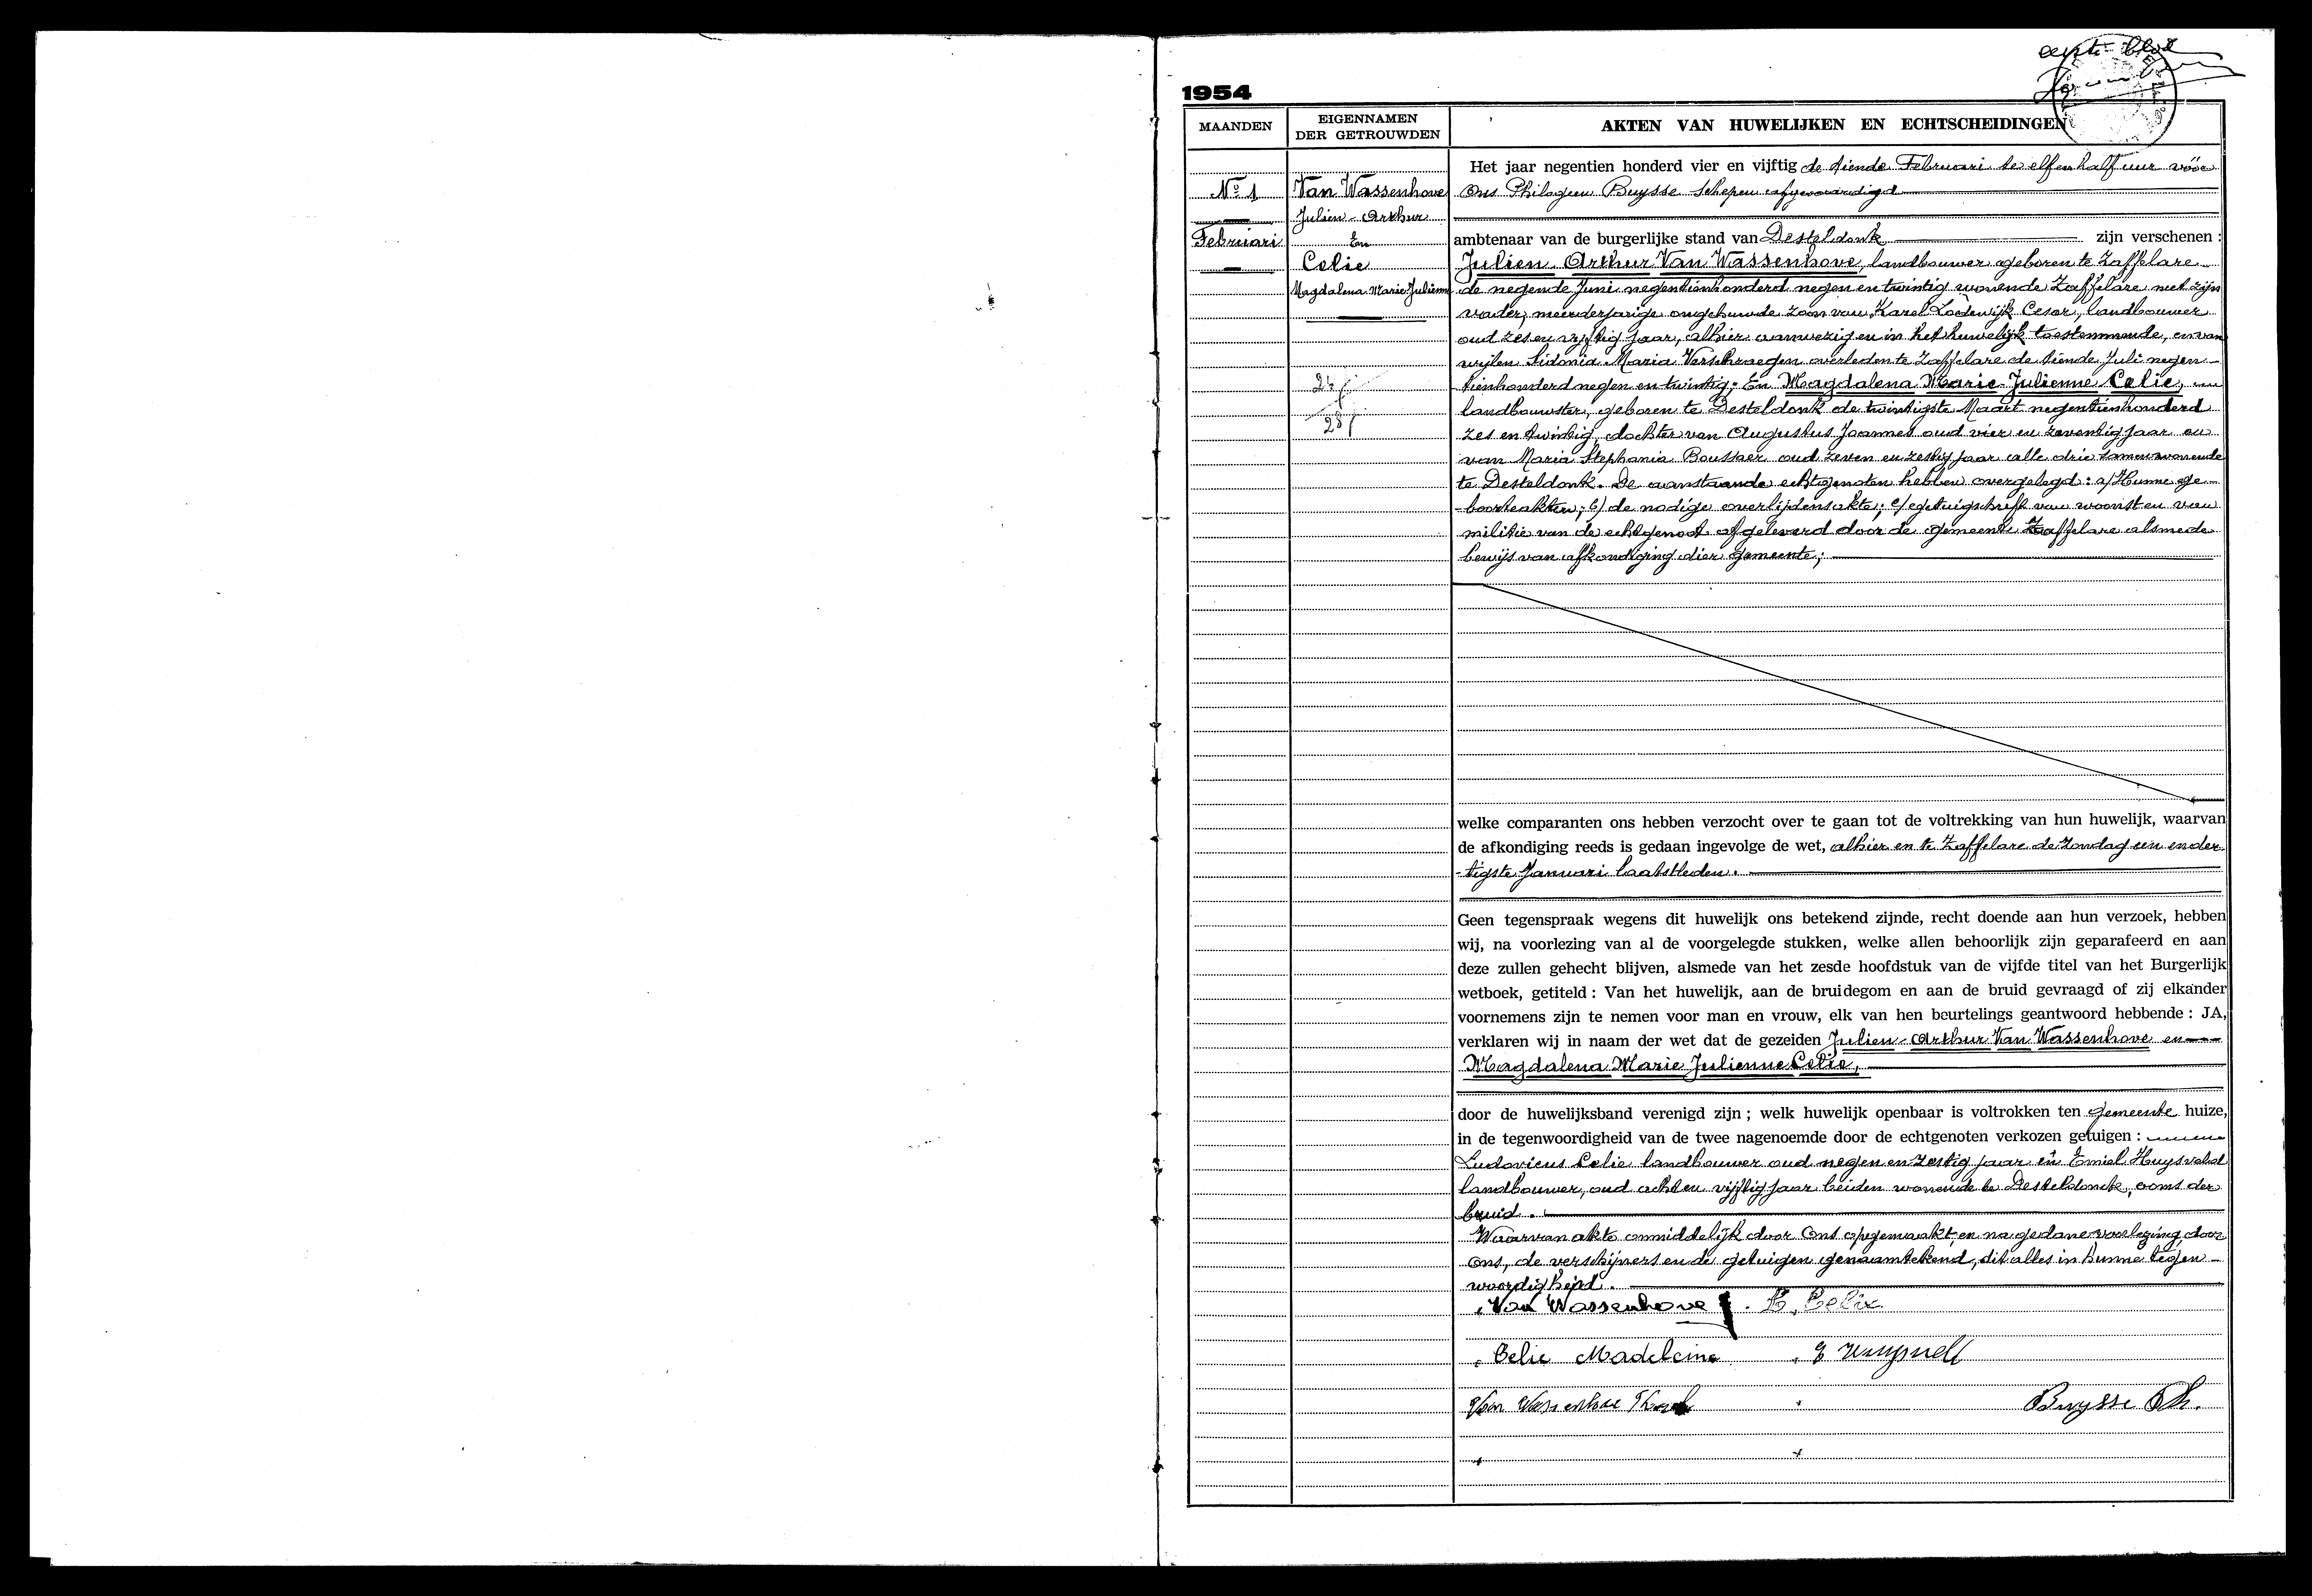 eerste blad
1954
MAANDEN
EIGENNAMEN
DER GETROUWDEN
AKTEN VAN HUWELIJKEN EN ECHTSCHEIDINGEN
Nº 1
Februari
Van Wassenhove
Julien-Arthur
En
Celie
Magdalena Marie Julienne
24
28
Het jaar negentien honderd vier en vijftig de tiende Februari te elf en half uur vóór
Ons Philogeen Buysse Schepen afgevaardigd
ambtenaar van de burgerlijke stand van Desteldonk zijn verschenen :
Julien Arthur Van Wassenhove, landbouwer geboren te Zaffelare
de negende Juni negentienhonderd negen en twintig wonende Zaffelare met zijn
vader, meerderjarige ongehuwde zoon van Karel Lodewijk Cesar, landbouwer
oud zes en vijftig jaar, alhier aanwezig en in het huwelijk toestemmende, en van
wijlen Sidonia Maria Verschraegen overleden te Zaffelare de tiende Juli negen-
tienhonderd negen en twintig; En Magdalena Marie Julienne Celie,
landbouwster, geboren te Desteldonk de twintigste Maart negentienhonderd
zes en twintig, dochter van Augustus Joannes oud vier en zeventig jaar en
van Maria Stephania oud zeven en zestig jaar alle drie samenwonende
te Desteldonk. De aanstaande echtgenoten hebben overgelegd: a/ Hunne ge-
-boorteakten; b/ de nodige overlijdensakte; c/ getuigschrift van woonst en van
militie van de echtgenoot afgeleverd door de gemeente Zaffelare alsmede
bewijs van afkondiging dier gemeente;
welke comparanten ons hebben verzocht over te gaan tot de voltrekking van hun huwelijk, waarvan
de afkondiging reeds is gedaan ingevolge de wet, alhier en te Zaffelare de Zondag een en der-
-tigste Januari laatstleden.
Geen tegenspraak wegens dit huwelijk ons betekend zijnde, recht doende aan hun verzoek, hebben
wij, na voorlezing van al de voorgelegde stukken, welke allen behoorlijk zijn geparafeerd en aan
deze zullen gehecht blijven, alsmede van het zesde hoofdstuk van de vijfde titel van het Burgerlijk
wetboek, getiteld : Van het huwelijk, aan de bruidegom en aan de bruid gevraagd of zij elkander
voornemens zijn te nemen voor man en vrouw, elk van hen beurtelings geantwoord hebbende : JA,
verklaren wij in naam der wet dat de gezeiden Julien-Arthur Van Wassenhove en
Magdalena Marie Julienne Celie,
door de huwelijksband verenigd zijn ; welk huwelijk openbaar is voltrokken ten gemeente huize,
in de tegenwoordigheid van de twee nagenoemde door de echtgenoten verkozen getuigen :
Ludovicus Celie landbouwer oud negen en zestig jaar en Emiel
landbouwer, oud acht en vijftig jaar beiden wonende te Desteldonck, ooms der
bruid.
Waarvan akte onmiddelijk door Ons opgemaakt en na gedane voorlezing, door
Ons, de verschijners en de getuigen genaamtekend, dit alles in hunne tegen-
woordigheid.
Van Wassenhove J. L. Celie
Celie Madeleine
Van Wassenhove
Buysse Ph.